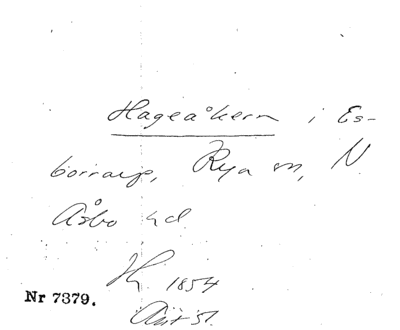 Hageåkern i Es-
borrarp, Rya sn, N.
Åsbo hd
H. 1854
Nr 7379.